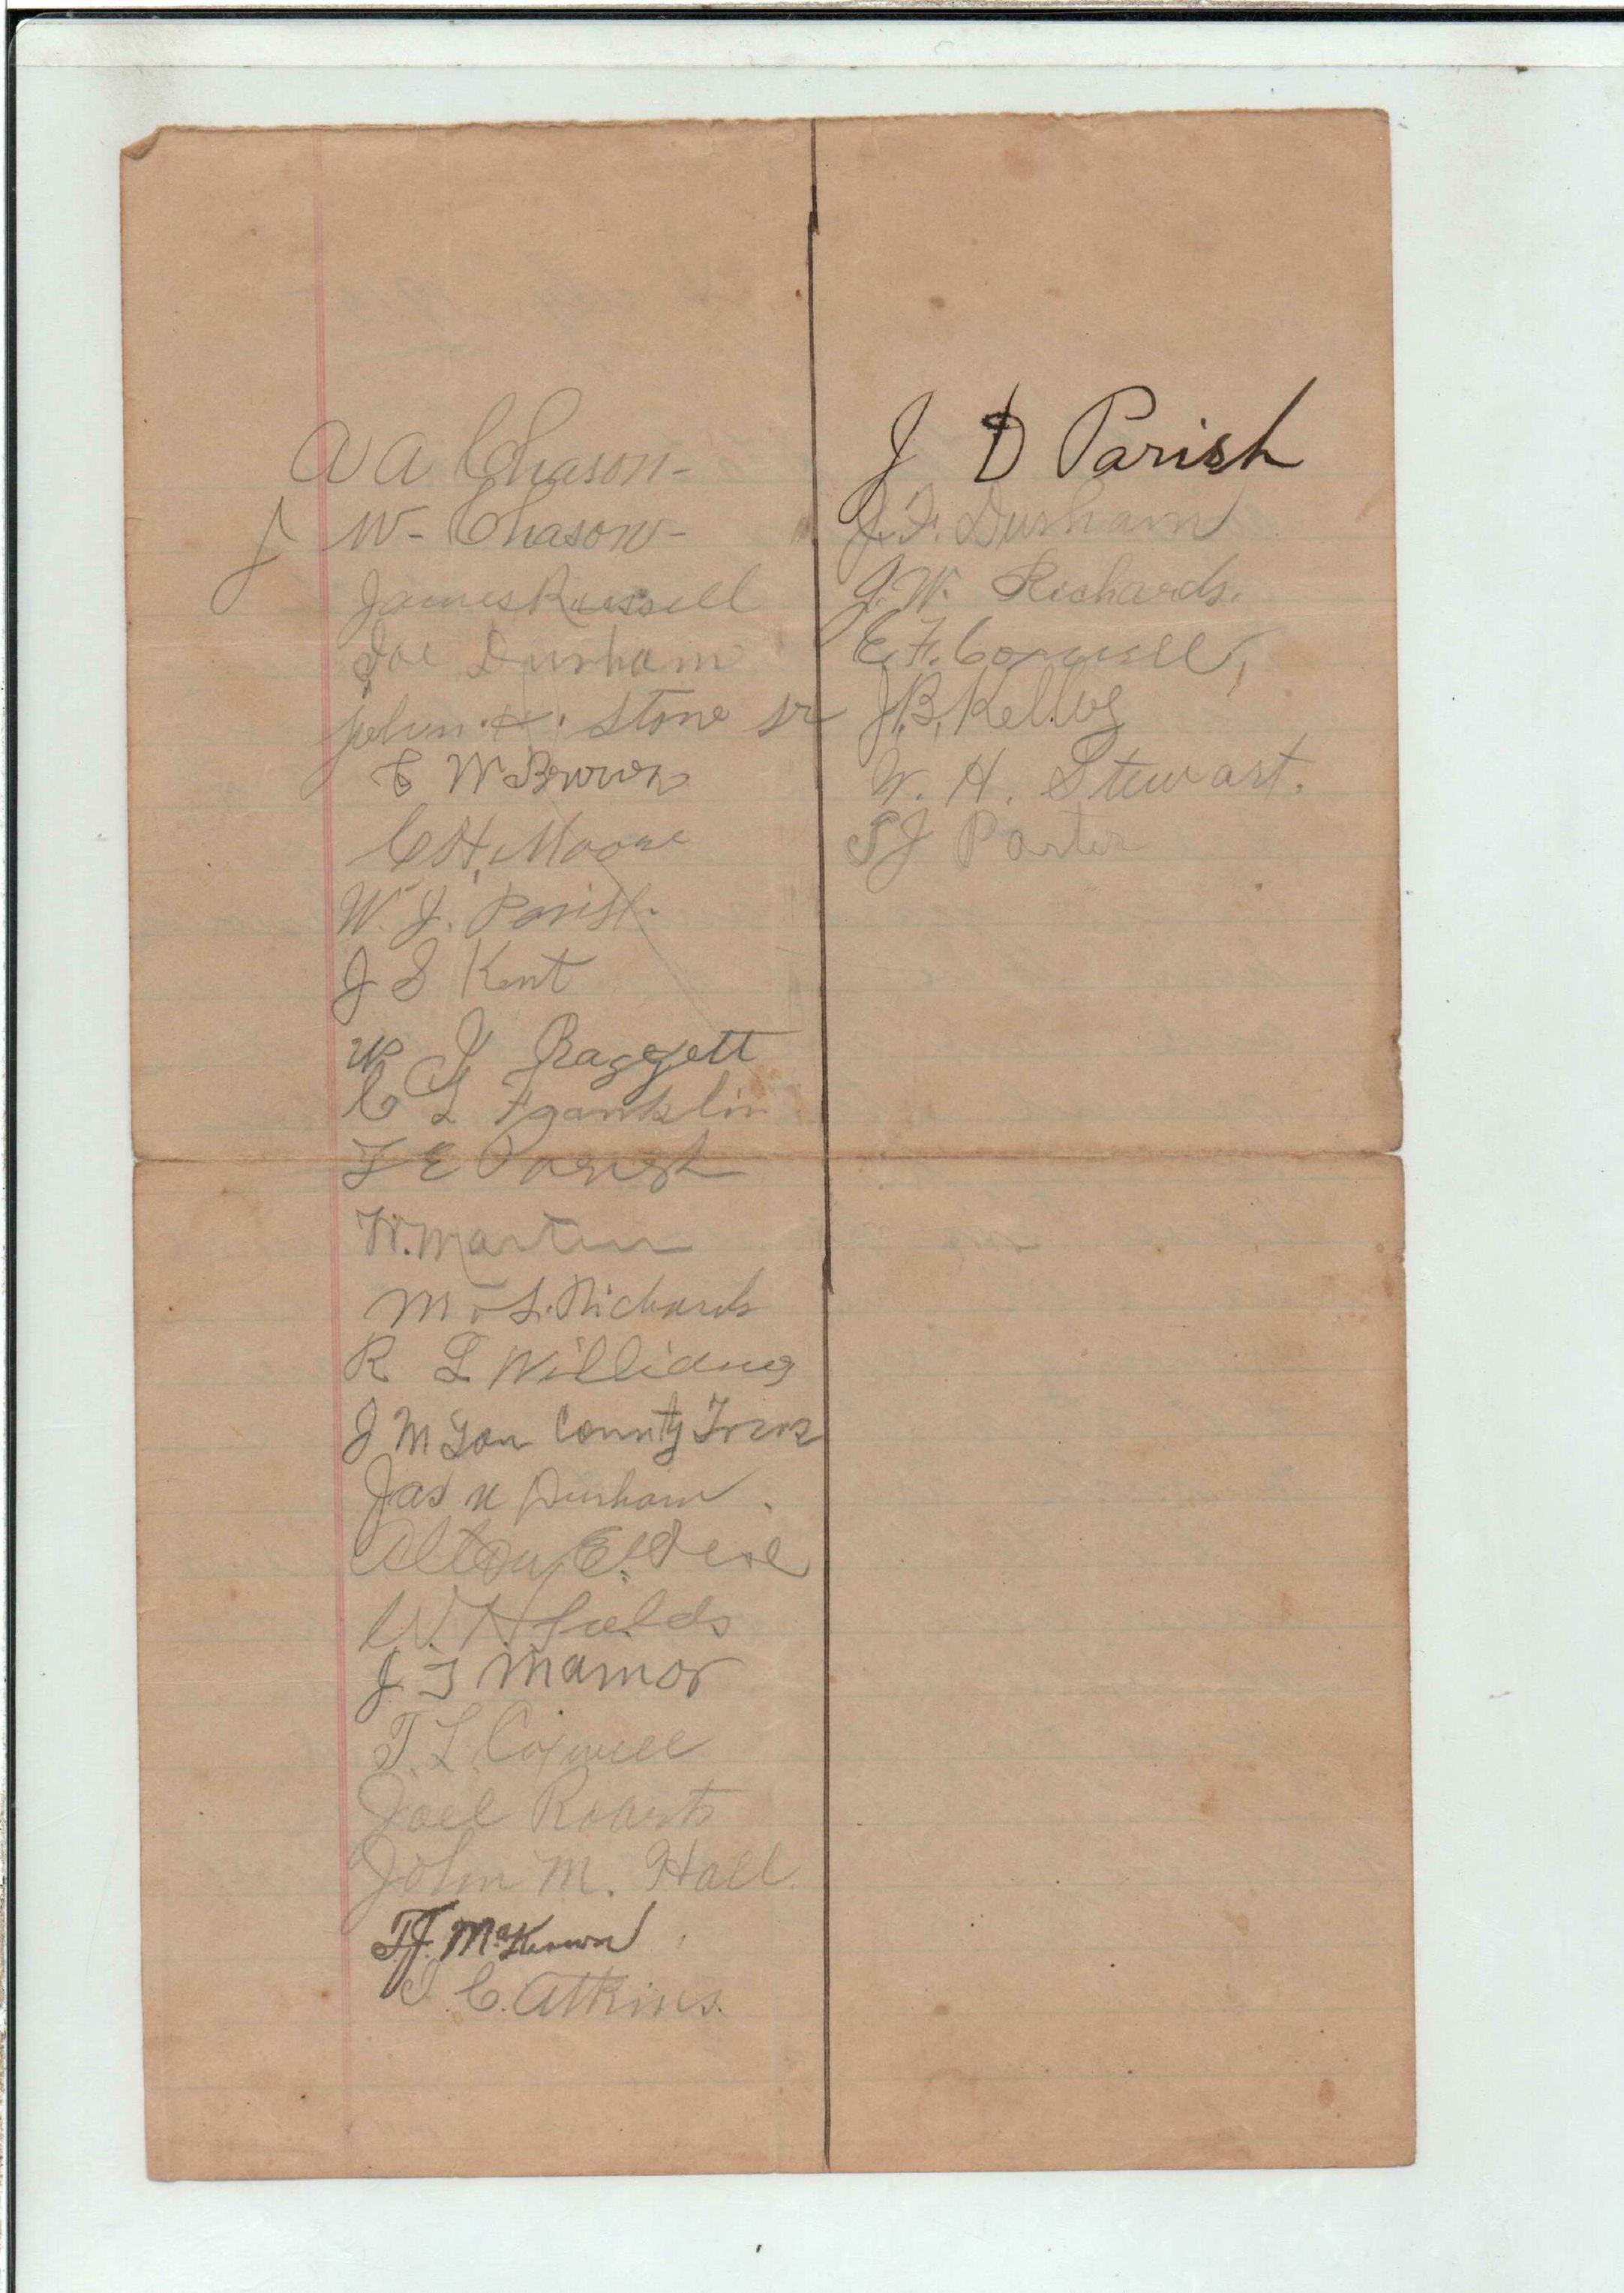 A A Chason-
J W- Chason-
James Russell
Joe Durham
John. H. Stone Sr
E W Brown
C H. Moore
W. J. Parish.
J S Kent
W J Baggett
C L Franklin
F E Parish
W. Martin
M. L. Richards
R L Williams
J M Yon County Treas
Jas Durham.
Alton E.
W. H Fields
J. T Mamor
T. L. Coxwell
Joel Roberts
John M. Hall.
T. J. McKeown
C. Atkins.
J D Parish
J. F. Durham
J. W. Richards.
E. F. Coxwell,
J. B. Kelley
W. H. Stewart.
S J Porter